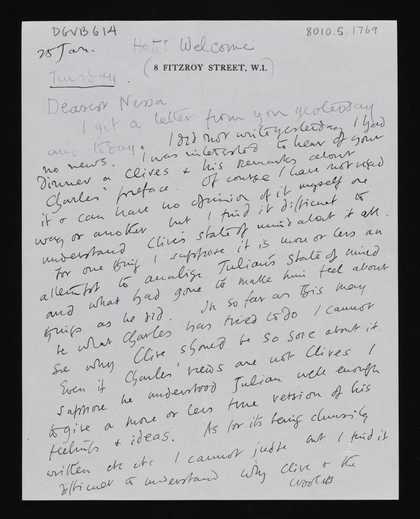 DGVB61A
8010.5.1769
25 Jan.
Hotel Welcome
(8 FITZROY STREET, W.1.)
Tuesday.
Dearest Nessa
I got a letter from you yesterday
and today. I did not write yesterday I had
no news. I was interested to hear of your
dinner & Clives & his remarks about
Charles' preface. Of course I have not read
it & can have no opinion of it myself one
way or another but I find it difficult to
understand Clive's state of mind about it all.
For one thing I suppose it is more or less an
attempt to analyse Julian's state of mind
and what had gone to make him feel about
things as he did. In so far as this may
be what Charles has tried to do I cannot
see why Clive should be so sore about it.
Even if Charles' views are not Clives I
suppose he understood Julian well enough
to give a more or less true version of his
feelings & ideas. As for its being clumsily
written etc etc I cannot judge but I find it
difficult to understand why Clive & the
Woolfs